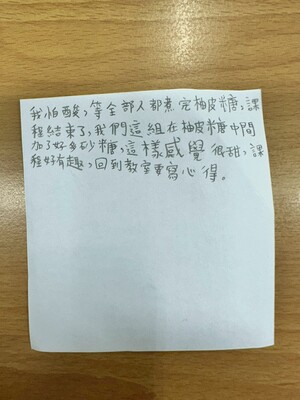 我怕酸，等全部人都煮完柚皮糖，課
程結束了，我們這組在柚皮糖中間
加了好多砂糖，這樣感覺很甜，課
程好有趣，回到教室要寫心得。